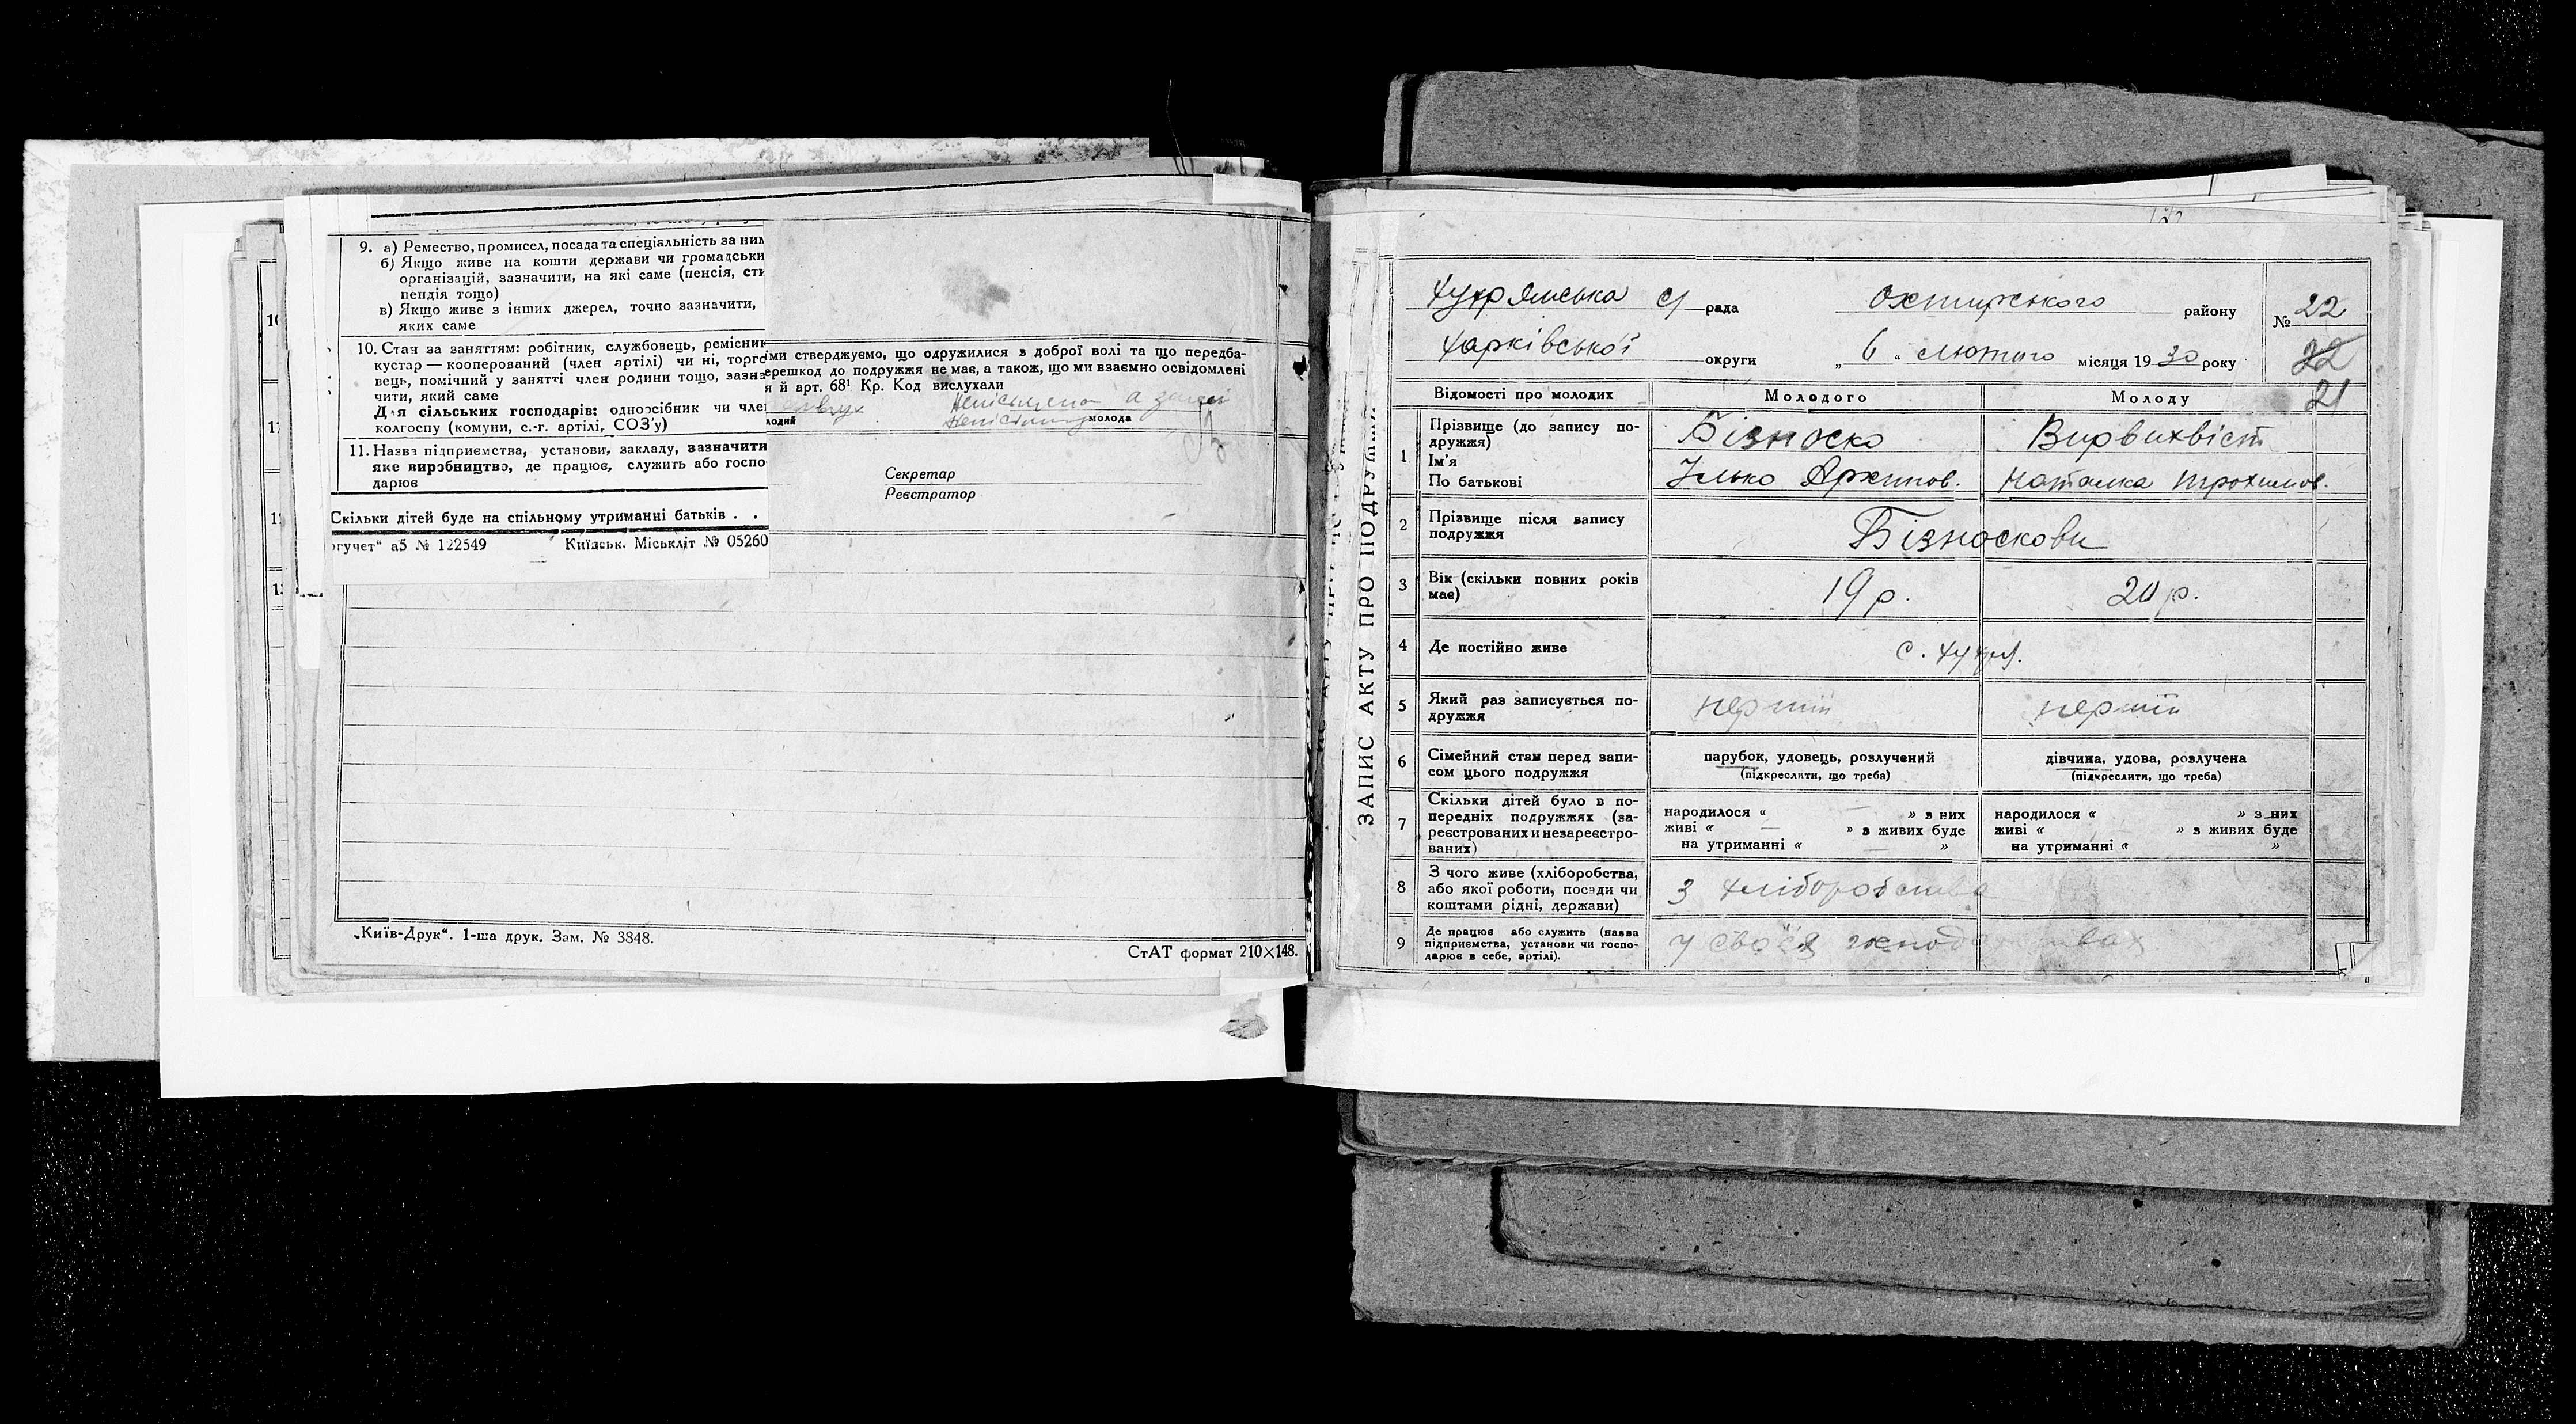 9. а) Ремество, промисел, посада та спеціяльність за ним
б) Якщо живе на кошти держави чи громадськи
організацій, зазначити, на які саме (пенсія, сти
пендія тощо)
в) Якщо живе з інших джерел, точно зазначити,
яких саме
10. Стан за заняттям: робітник, службовець, ремісник
кустар — кооперований (член артілі) чи ні, торго
вець, помічний у занятті член родини тощо, зазна
чити, який саме
Для сільських господарів: одноосібник чи член
колгоспу (комуни, с.-г. артілі, СОЗ'у)
11. Назва підприємства, установи, закладу, зазначити
яке виробництво, де працює, служить або госпо
дарює
Скільки дітей буде на спільному утриманні батьків . .
ргучет“ а5 № 122549 Київськ. Міськліт № 05260
ими стверджуємо, що одружилися з доброї волі та що передба-
ерешкод до подружжя не має, а також, що ми взаємно освідомлені
я й арт. 68¹ Кр. Код вислухали
лодий молода
Секретар
Реєстратор
„Київ-Друк“. 1-ша друк. Зам. № 3848.
СтАТ формат 210×148.
ЗАПИС АКТУ ПРО ПОДРУЖЖЯ
Хухрянська с/ рада Охтирського району № 22
Харківської округи „ 6 “ лютого місяця 19 30 року 22
21
Відомості про молодих Молодого Молоду
1 Прізвище (до запису по-
дружжя) Бізноско Вирвихвіст
Ім'я
По батькові Ілько Архипов. Наталка Трохимов.
2 Прізвище після запису
подружжя Бізноскови
3 Вік (скільки повних років
має) 19 р. 20 р.
4 Де постійно живе с. Хухря.
5 Який раз записується по-
дружжя перший перший
6 Сімейний стан перед запи-
сом цього подружжя
парубок, удовець, розлучений
(підкреслити, що треба)
дівчина, удова, розлучена
(підкреслити, що треба)
7 Скільки дітей було в по-
передніх подружжях (за-
реєстрованих и незареєстро-
ваних)
народилося « — » з них
живі « — » з живих буде
на утриманні « — »
народилося « » з них
живі « » з живих буде
на утриманні « »
8 З чого живе (хліборобства,
або якої роботи, посади чи
коштами рідні, держави) З хліборобства
9 Де працює або служить (назва
підприємства, установи чи госпо-
дарює в себе, артілі).